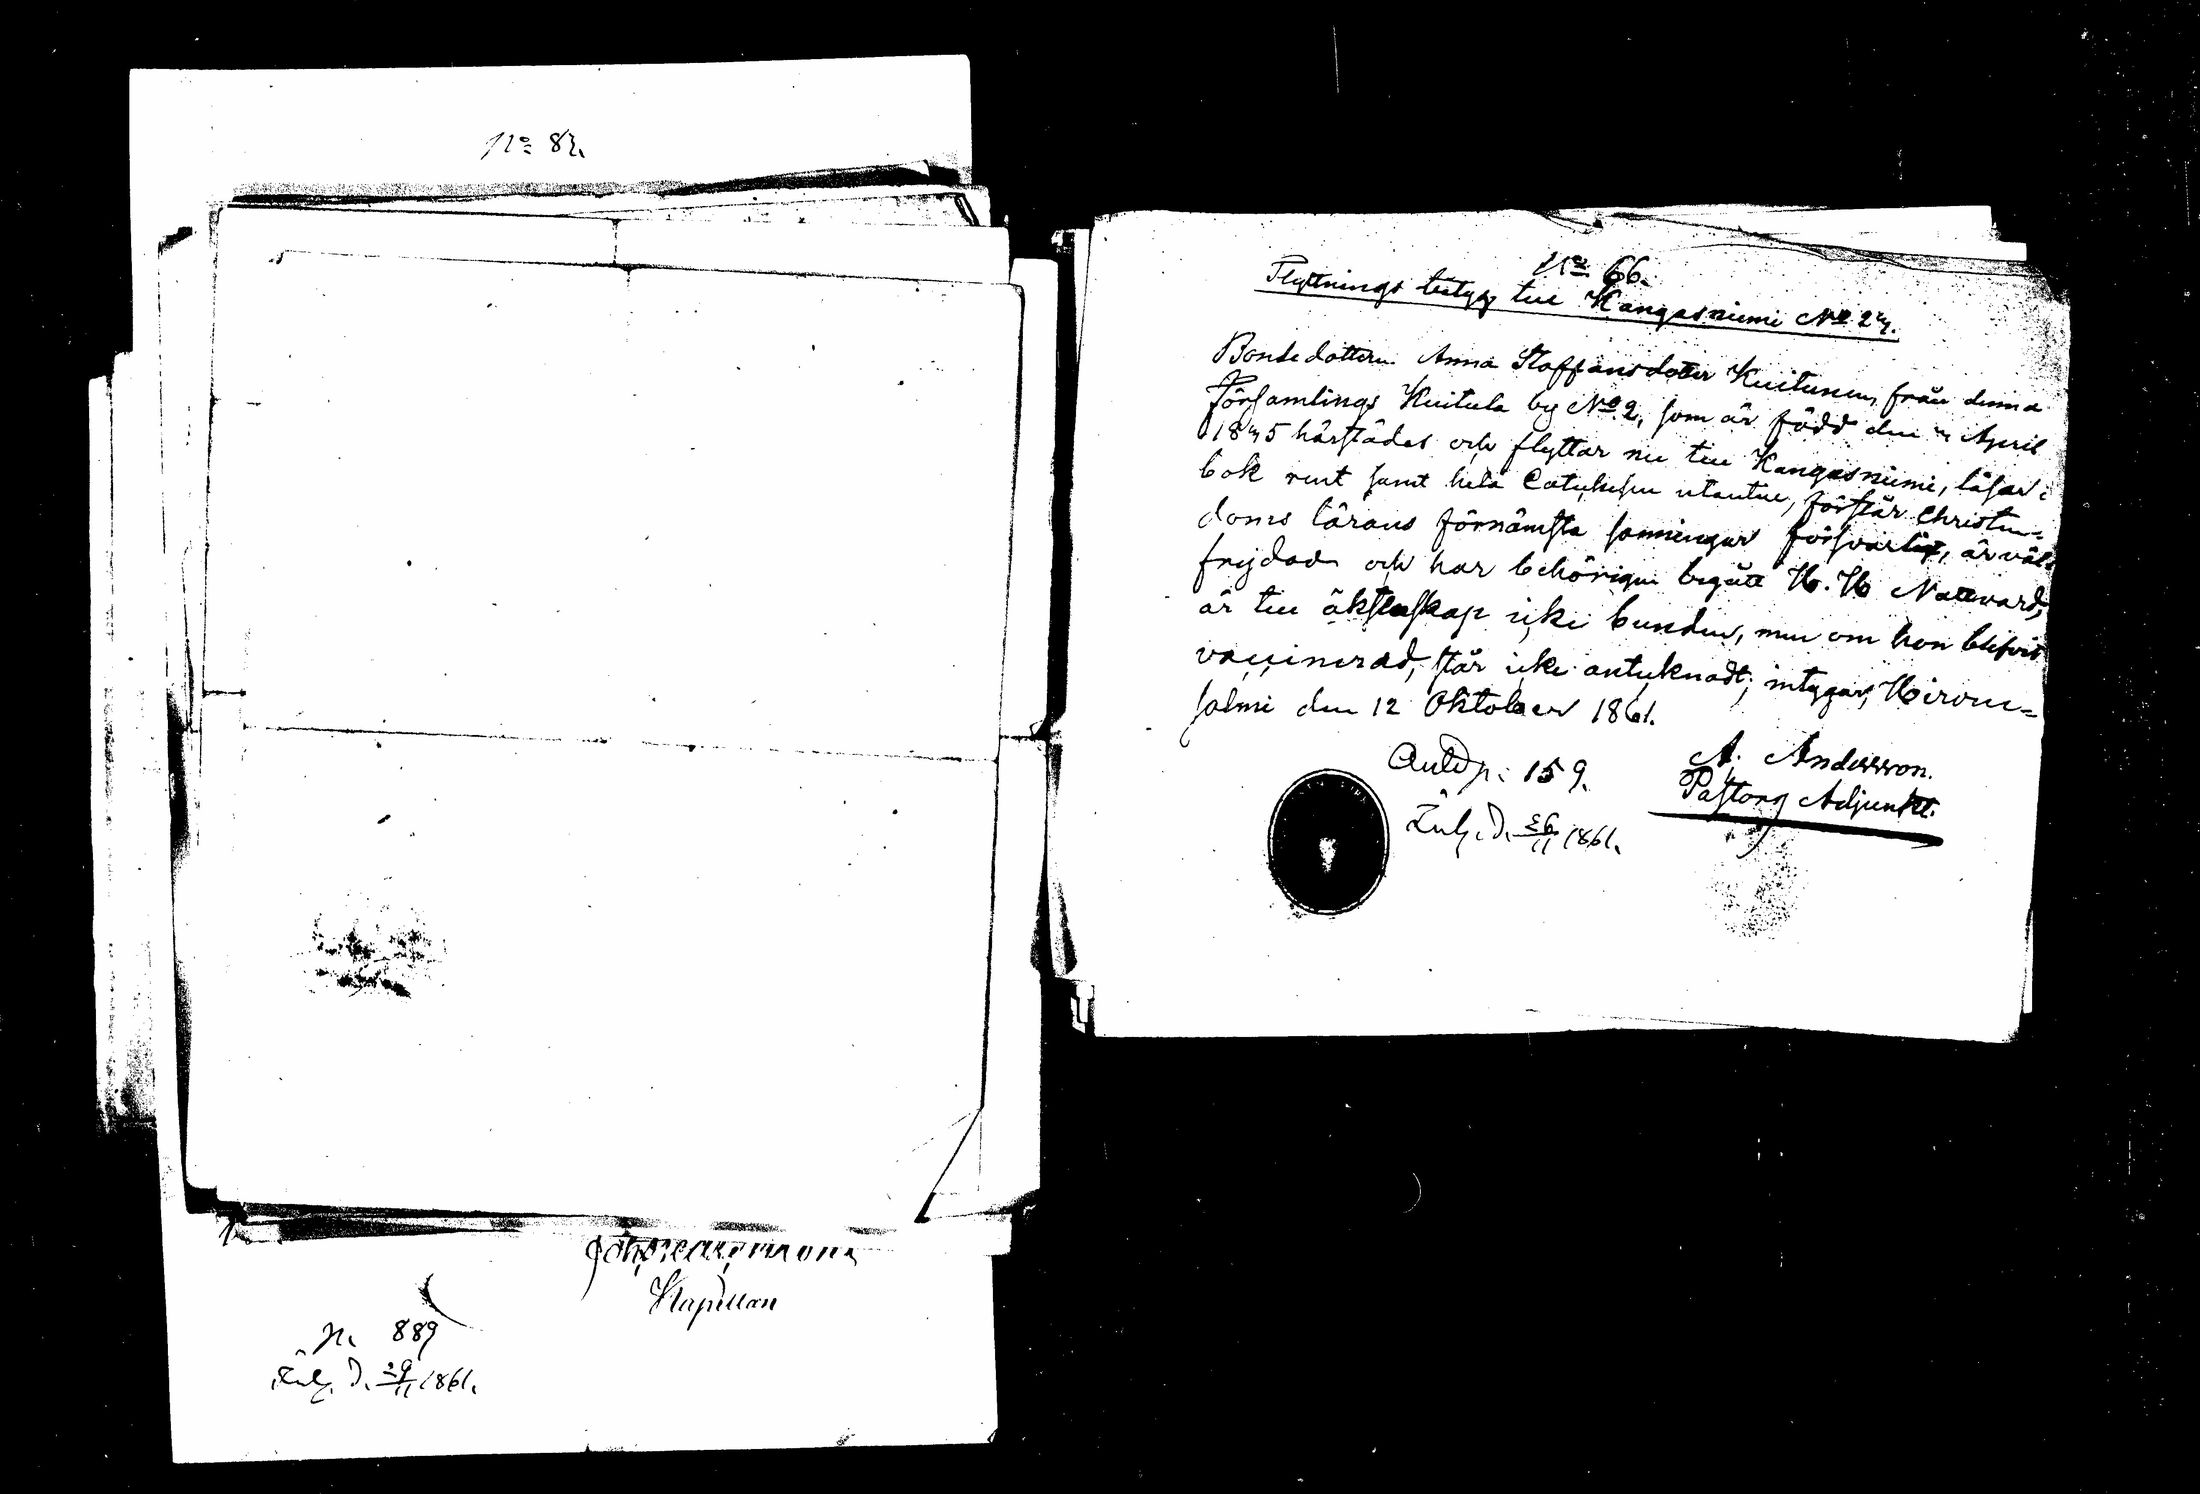 No 82.
Kapellan
N. 889
Inl. d. 29/11 1861.
No 66.
Flyttnings betyg till Kangasniemi No 24.
Bondedottern Anna Staffansdotter Kuitunen, från denna
Församlings Kuitula by No 2, som är född den 4 April
1845 härstädes och flyttar nu till Kangasniemi, läser i
bok rent samt hela Catechesen utantill, förstår Christen=
doms lärans förnämsta sanningar försvarligt, är väl=
frejdad och har behörigen begått H. H. Nattvard,
är till äktenskap icke bunden, men om hon blifvit
vaccinerad, står icke antecknadt; intygar, Hirven=
salmi den 12 Oktober 1861.
A. Andersson.
Pastors Adjunkt.
159.
Inl. d. 26/11 1861.